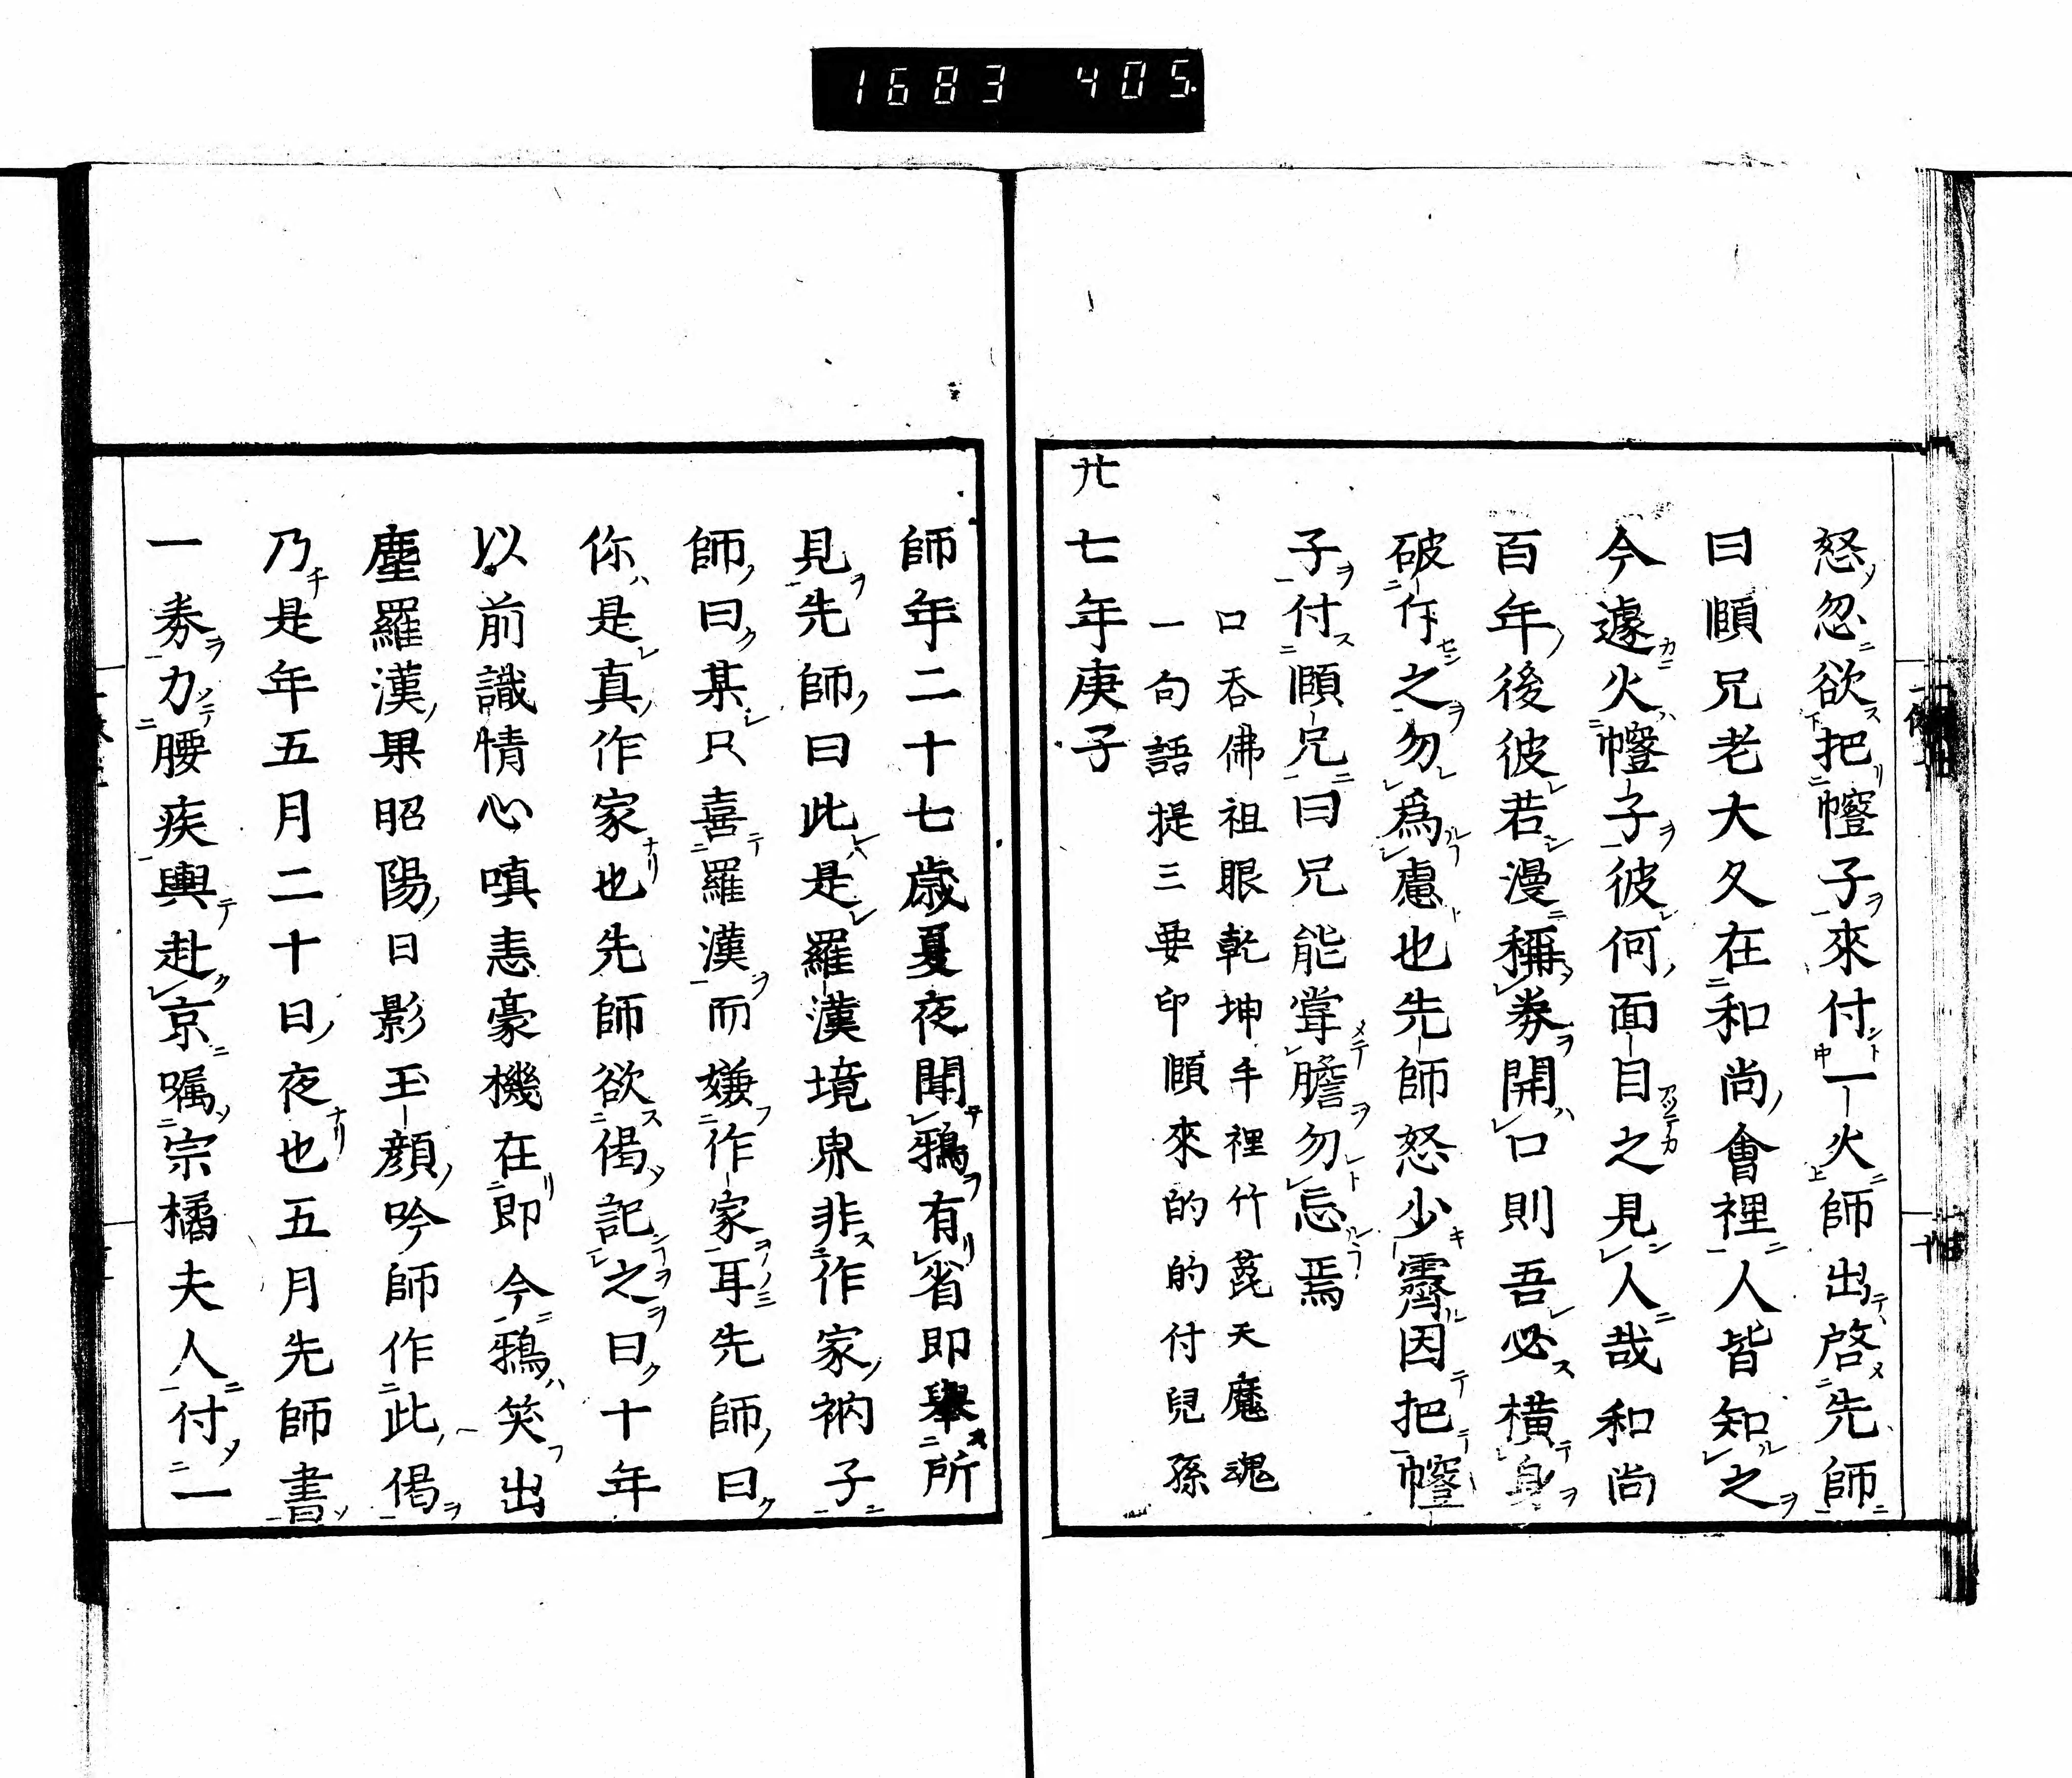 1683 405.
怒忽欲把幢子來付一火師出啓先師
曰頤兄老大久在和尚會裡人皆知之
今遽火幢子彼何面目之見人哉和尚
百年後彼若漫稱券開口則吾必横身
破斥之勿爲慮也先師怒少霽因把幢
子付頤兄曰兄能嘗膽勿忘焉
口吞佛祖眼乾坤手裡竹蓖天魔魂
一句語提三要印頤來的的付兒孫
廿七年庚子
師年二十七歳夏夜聞鴉有省即舉所
見先師曰此是羅漢境界非作家衲子
師曰某只喜羅漢而嫌作家耳先師曰
你是真作家也先師欲偈記之曰十年
以前識情心嗔恚豪機在即今鴉笑出
塵羅漢果昭陽日影玉顔吟師作此偈
乃是年五月二十日夜也五月先師書
一券力腰疾輿赴京嘱宗橘夫人付一